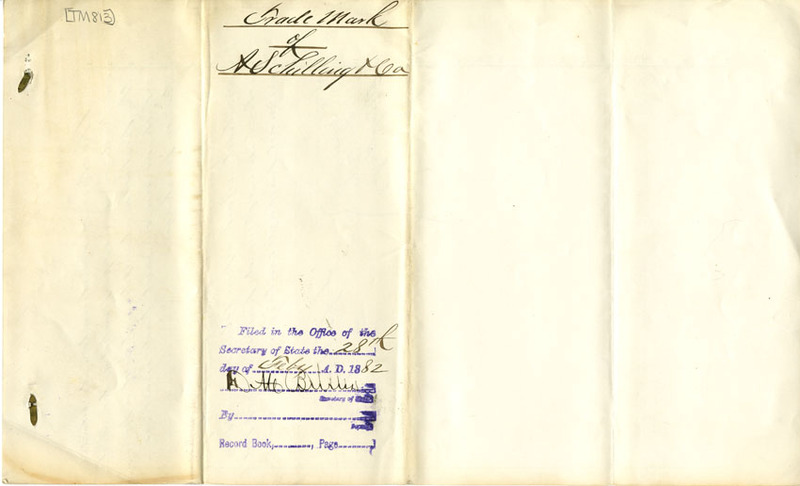 [TM813]
Trade Mark
of
A Schilling & Co
Filed in the Office of the
Secretary of State the 28th
day of Feby A. D. 1882
Secretary of
By
Record Book, , Page